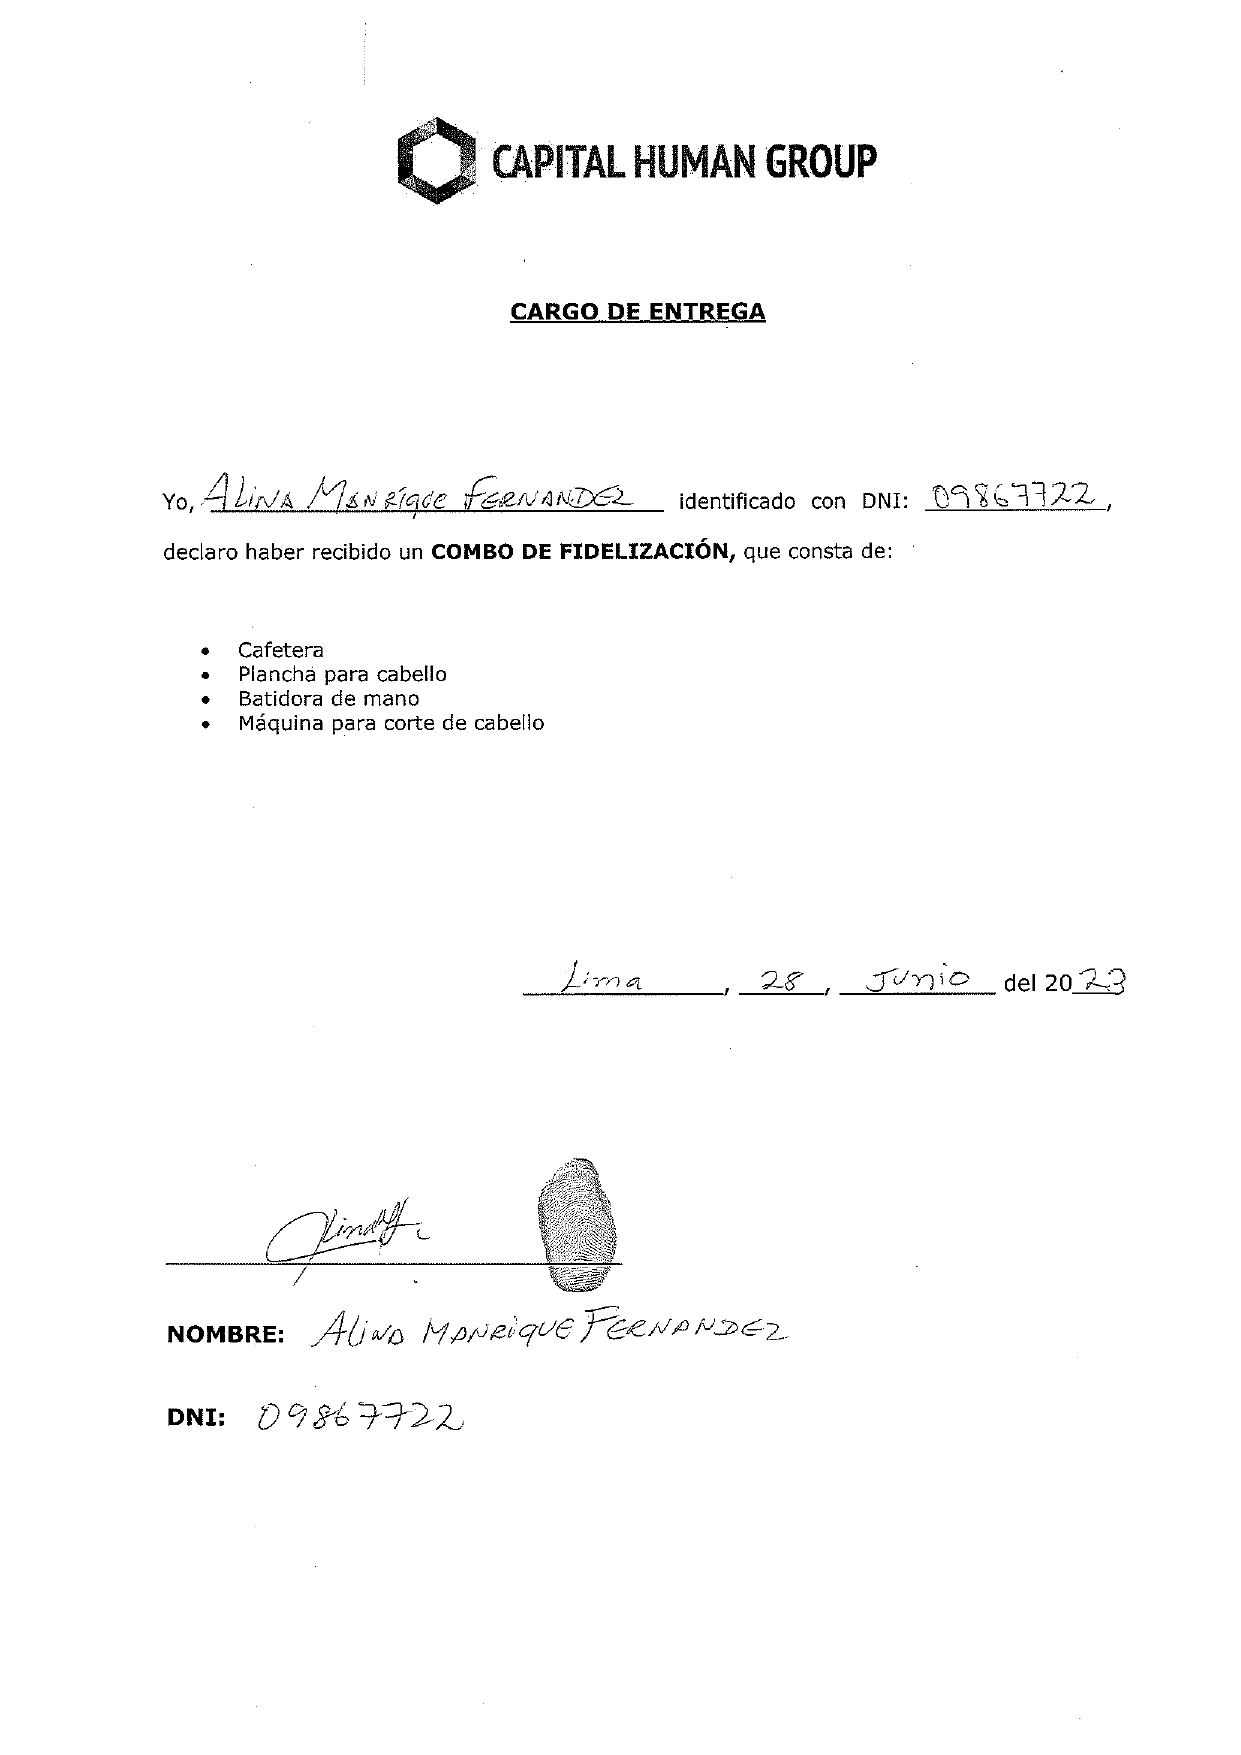 CAPITAL HUMAN GROUP
CARGO DE ENTREGA
Yo, ALINA MANRIQUE FERNANDEZ identificado con DNI: 09867722,
declaro haber recibido un COMBO DE FIDELIZACIÓN, que consta de:
• Cafetera
• Plancha para cabello
• Batidora de mano
• Máquina para corte de cabello
Lima, 28, Junio del 2023
NOMBRE: ALINA MANRIQUE FERNANDEZ
DNI: 09867722